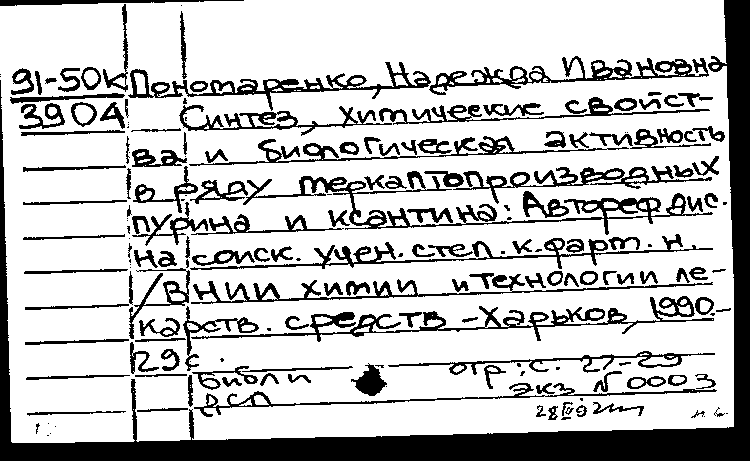 91-50К Пономаренко, Надежда Ивановна
3904 Синтез, химические свойст-
ва и биологическая активность
в ряду меркаптопроизводных
пурина и ксантина: Автореф. дис.
на соиск. учен. степ. к. фарм. н.
/ВНИИ химии и технологии ле-
карств. средств -Харьков, 1990.-
29с.
Библи огр: с. 27-29
ДСП экз N 0003